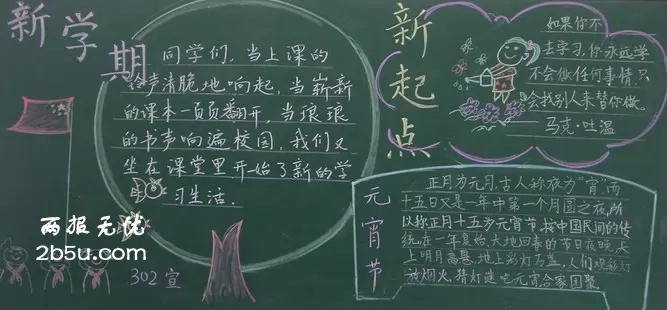 新学期
同学们,当上课的
铃声清脆地响起,当崭新
的课本一页页翻开,当琅琅
的书声响遍校园,我们又
坐在课堂里开始了新的学
习生活.
302宣
新起点
如果你不
去学习,你永远学
不会做任何事情,只
会找别人来替你做。
——马克·吐温
元宵节
正月为元月,古人称夜为"宵",而
十五日又是一年中第一个月圆之夜,所
以称正月十五为元宵节,按中国民间的传
统,在一年复始,大地回春的节日夜晚,天
上明月高悬,地上彩灯万盏,人们观彩灯
放烟火、猜灯谜、吃元宵,合家团聚
两报无忧
2b5u.com